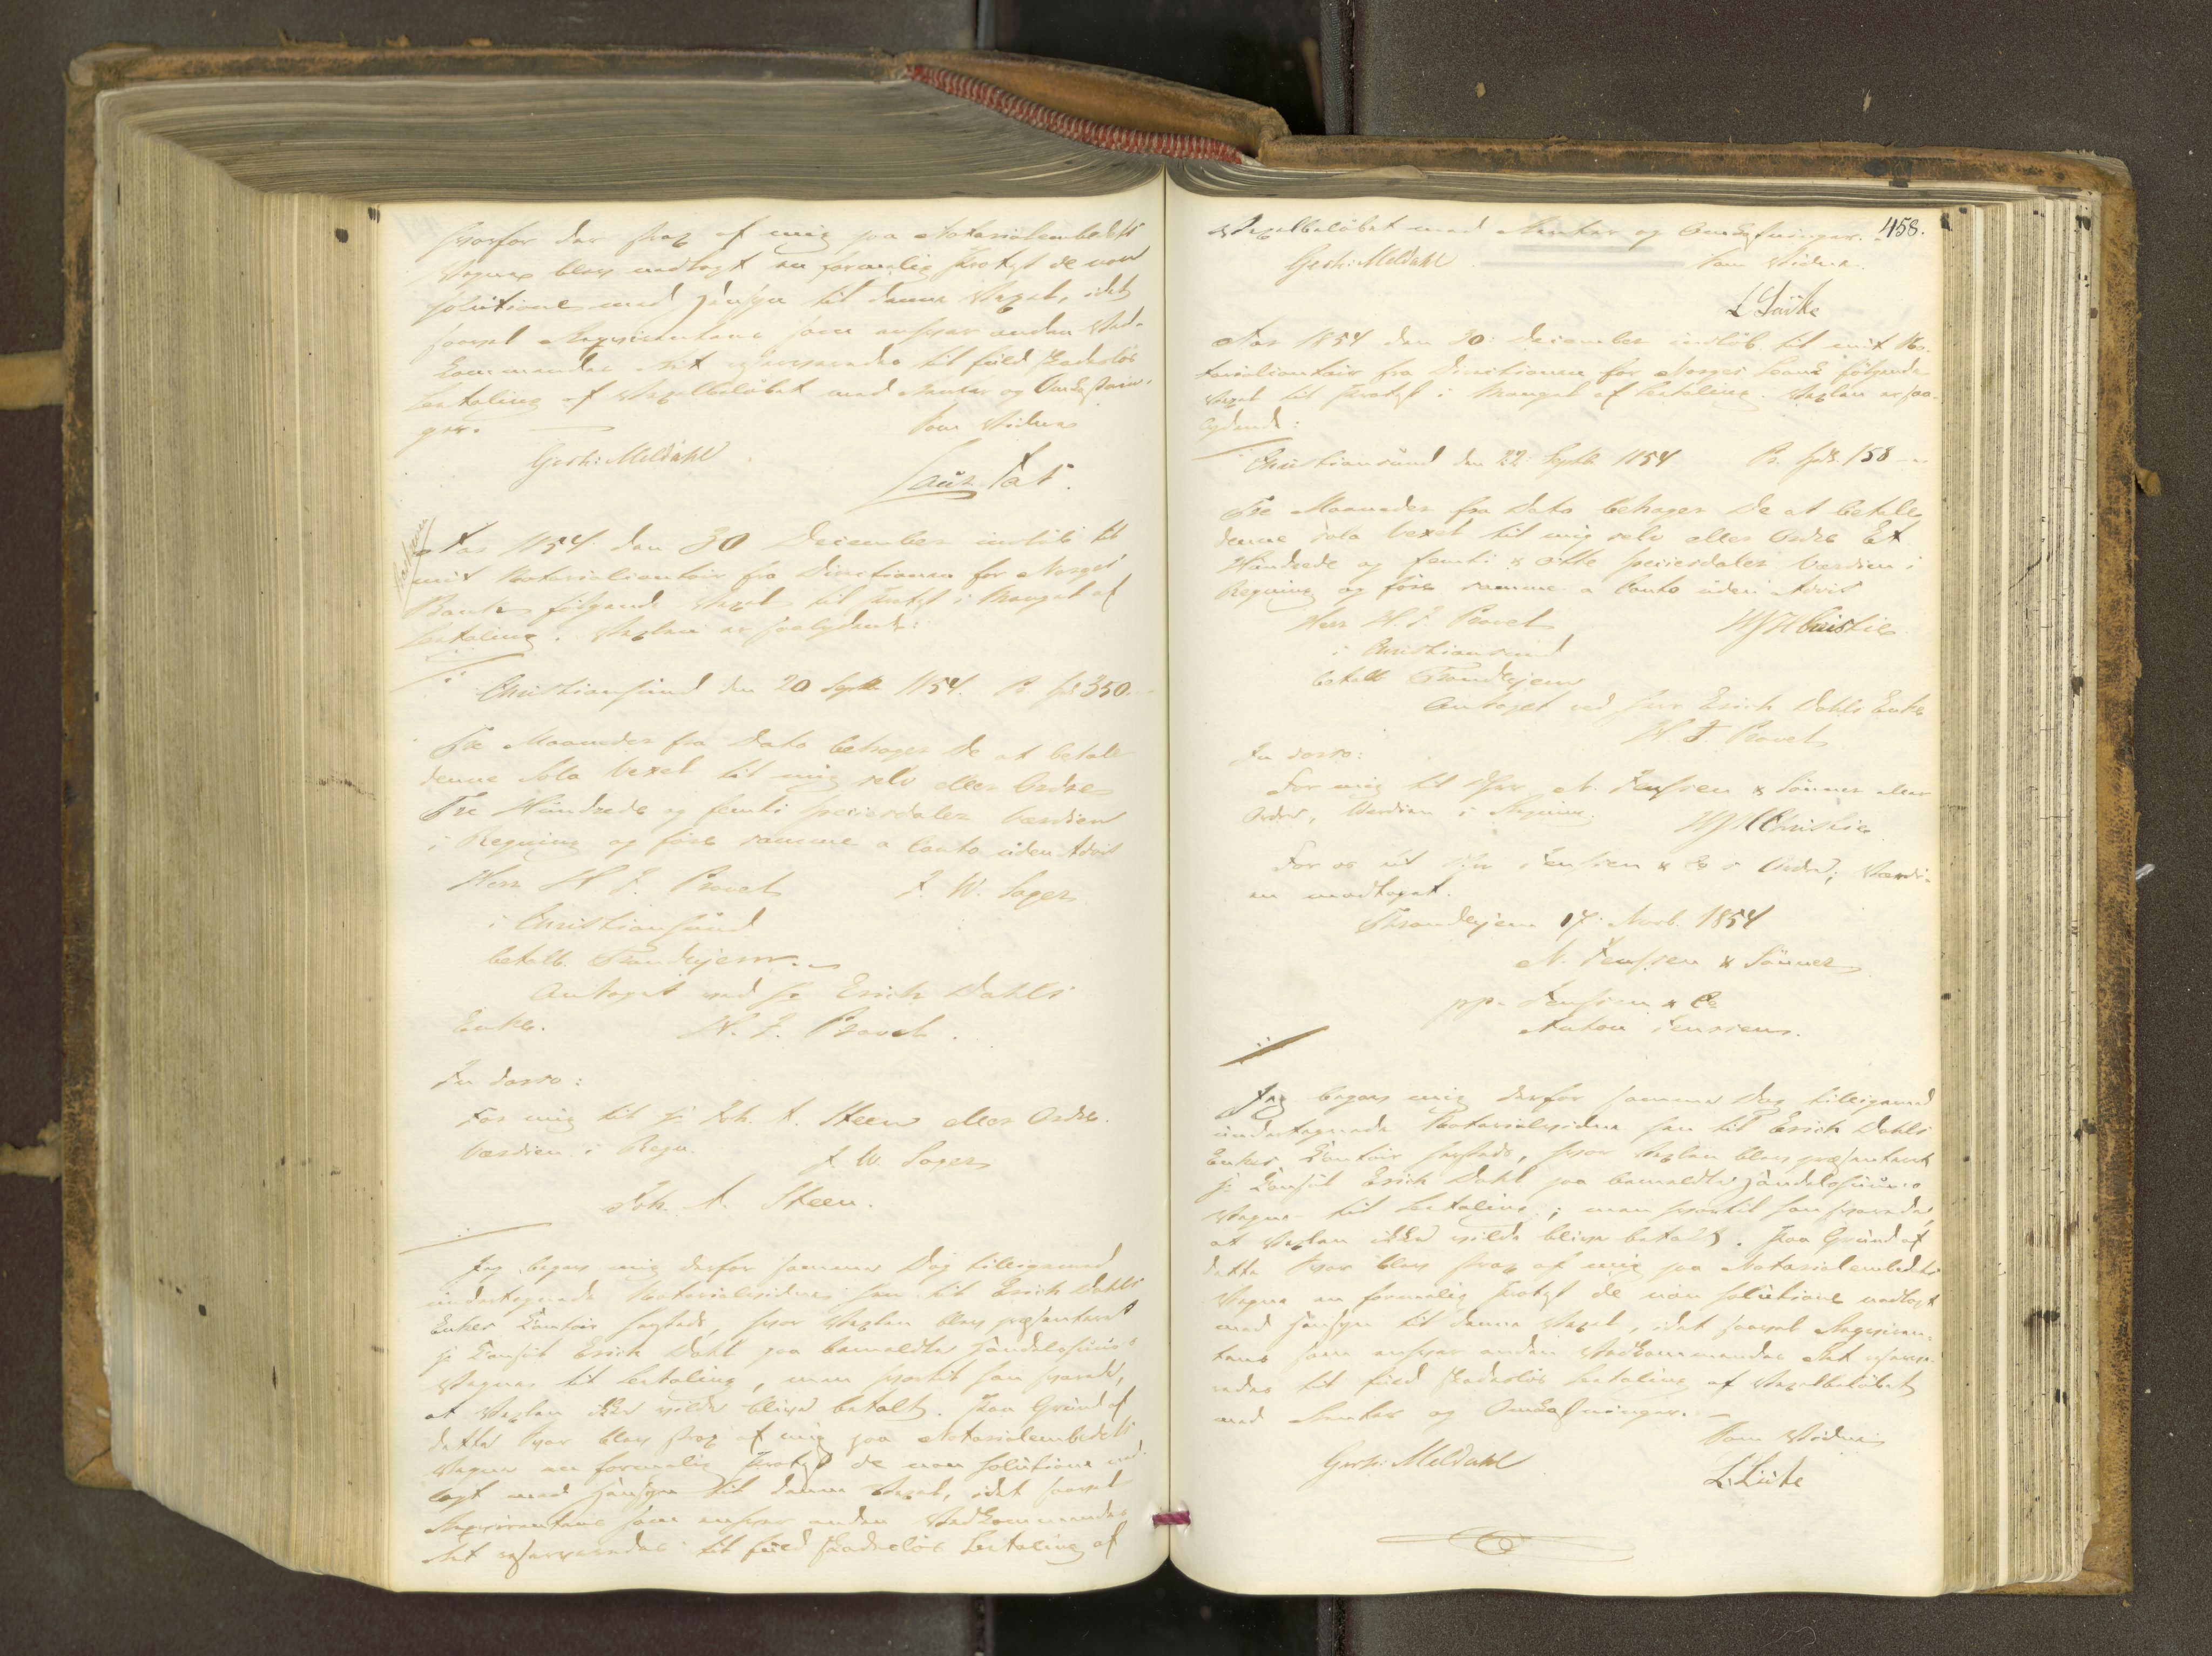 hvorfor der strax af mig paa Notarialembedets
Vegne blev nedlagt en formelig Protest de non
solutione med Hensyn til denne Vexel, idet
saavel Reqvirentens som enhver anden Ved-
kommendes Ret reserveredes til fuld skadeslös
Betaling af Vexelbelöbet med Renter og Omkostnin-
ger.
Som Vidne
Gerh: Meldahl
Aar 1854 den 30 December indlöb til
mit Notarialcontoir fra Directionen for Norges
Bank følgende Vexel til Protest i Mangel af
Betaling. Vexlen er saalydende:
Christianssund den 20 Septb 1854. Pr. Spd 350.
Tre Maaneder fra Dato behager De at betale
denne Sola Vexel til mig selv eller Ordre
Tre Hundrede og femti Speciesdaler Værdien
i Regning og före samme a Conto uden Advis
Herr N. F. Pravel J. W. Sager
i Christianssund
betalb. Trondhjem.
Antaget ved Hr Erich Dahls
Enke. N. F. Pravel.
In dorso:
For mig til Hr Joh. A. Steen eller Ordre.
Værdien i Regn. J. W. Sager
Joh. A. Steen.
Jeg begav mig derfor samme Dag tilligemed
undertegnede Notarialvidne hen til Erich Dahls
Enkes Contoir hersteds, hvor Vexlen blev præsenteret
Hr Consul Erich Dahl paa bemeldte Handelshuus's
Vegne til Betaling, men hvortil han svarede,
at Vexlen ikke vilde blive betalt. Paa Grund af
dette Svar blev strax af mig paa Notarialembedets
Vegne en formelig Protest de non solutione ned-
lagt med Hensyn til denne Vexel, idet saavel
Reqvirentens som enhver anden Vedkommendes
Ret reserveredes til fuld skadeslös Betaling af
458.
Vexelbelöbet med Renter og Omkostninger.
Gerh: Meldahl Som Vidne.
L Lütke
Aar 1854 den 30. December indlöb til mit No-
tarialcontoir fra Directionen for Norges Bank følgende
Vexel til Protest i Mangel af Betaling. Vexlen er saa-
lydende:
Christianssund den 22 Septb 1854 Pr. Spd. 158
Tre Maaneder fra Dato behager De at betale
denne Sola Vexel til mig selv eller Ordre Et
Hundrede og femti & otte Speciesdaler Værdien i
Regning og före samme a Conto uden Advis
Herr N. F. Pravel Christie
i Christianssund
betalb Trondhjem
Antaget ved Herr Erich Dahls Enke
N F. Pravel
In dorso:
For mig til Herr N. Jenssen & Sönner eller
Ordre, Værdien i Regning. Christie
For os til Hr Jenssen & Co s Ordre; Værdi-
en modtaget.
Throndhjem 17. Novb. 1854
N. Jenssen & Sönner
pp. Jenssen & Co
Anton Jenssen.
Jeg begav mig derfor samme Dag tilligemed
undertegnede Notarialvidne hen til Erich Dahls
Enkes Contoir hersteds, hvor Vexlen blev præsenteret
Hr Consul Erich Dahl paa bemeldte Handelshuus's
Vegne til Betaling; men hvortil han svarede,
at Vexlen ikke vilde blive betalt. Paa Grund af
dette Svar blev strax af mig paa Notarialembedets
Vegne en formelig Protest de non solutione nedlagt
med Hensyn til denne Vexel, idet saavel Reqviren-
tens som enhver anden Vedkommendes Ret reserve-
redes til fuld skadeslös Betaling af Vexelbelöbet
med Renter og Omkostninger.
Som Vidne
Gerh: Meldahl
L. Lütke